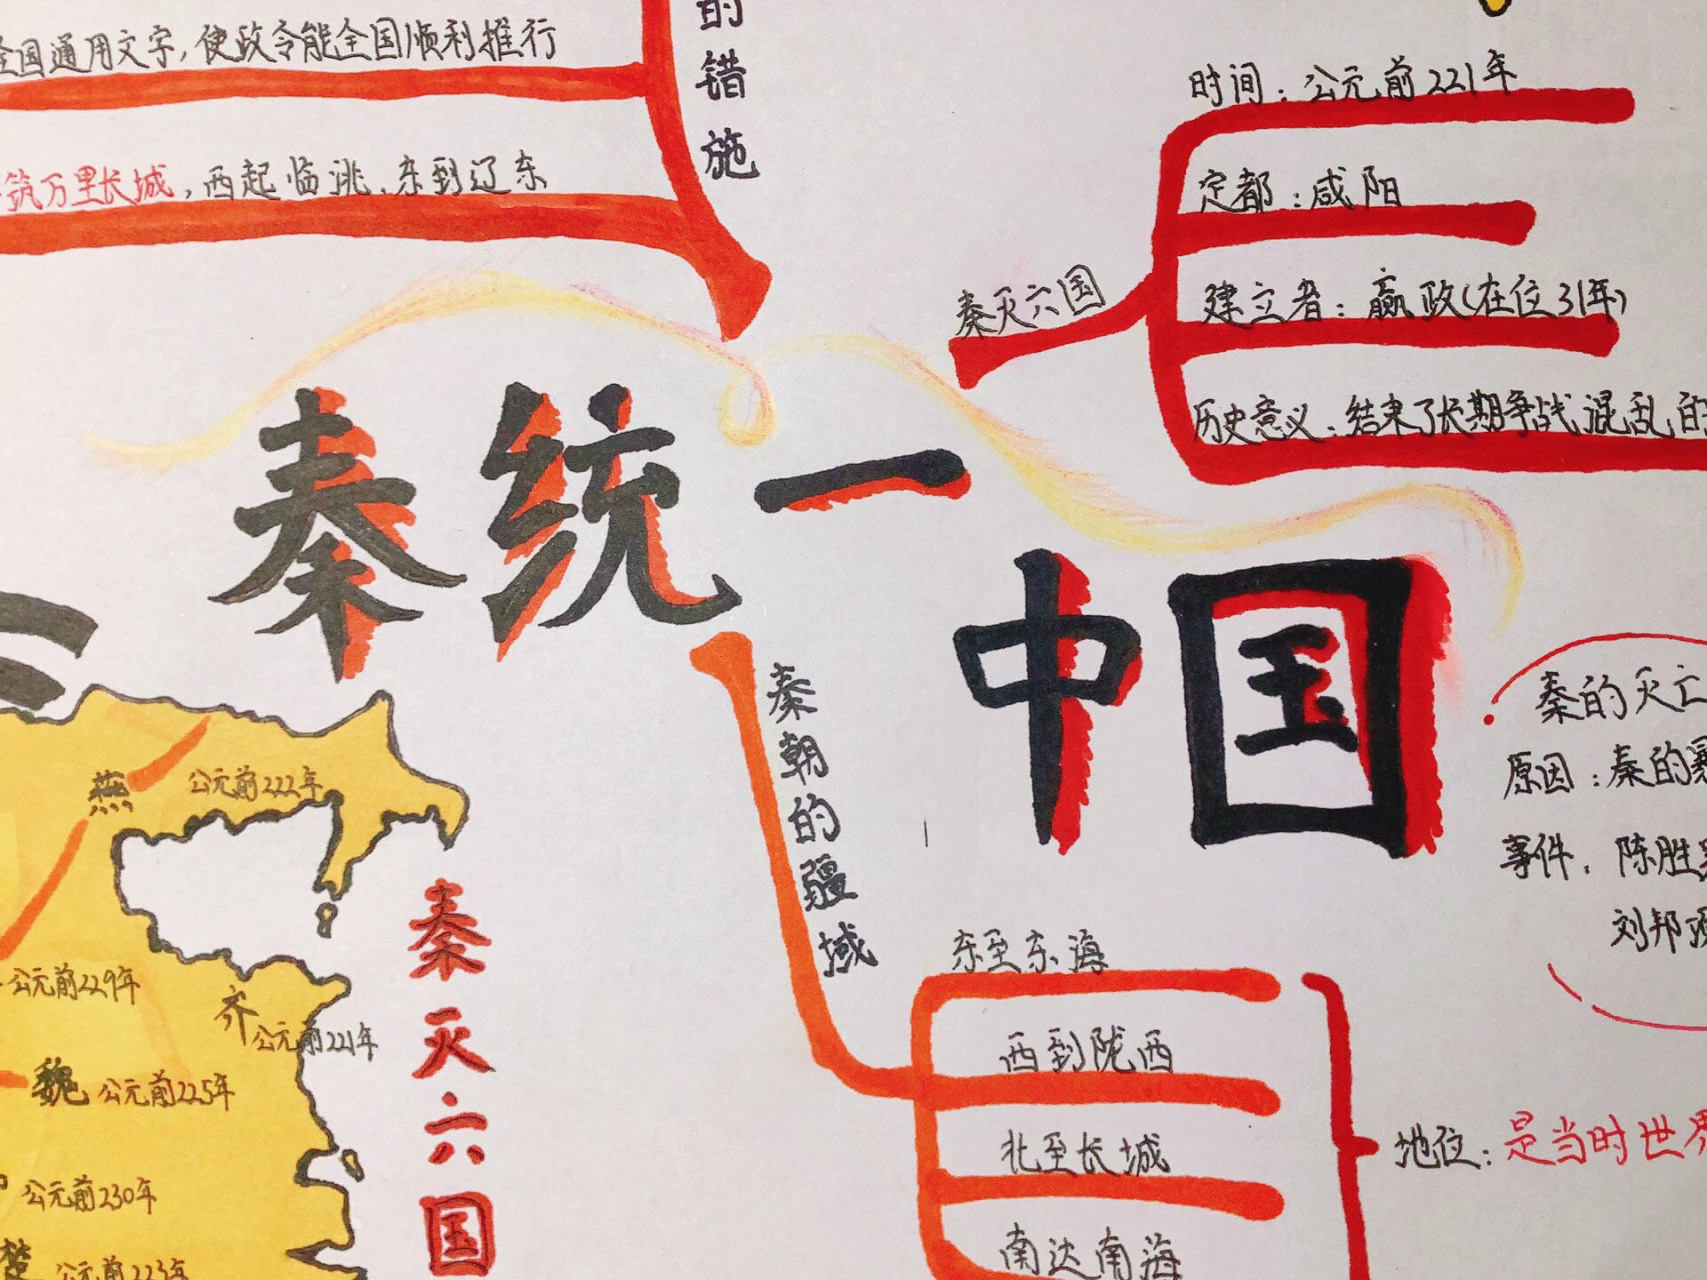 的措施
全国通用文字,使政令能全国顺利推行
筑万里长城,西起临洮,东到辽东
秦灭六国
时间:公元前221年
定都:咸阳
建立者:嬴政(在位31年)
历史意义:结束了长期争战混乱的
秦统一
中国
秦的灭亡
原因:秦的暴
事件:陈胜吴
刘邦项
秦朝的疆域
东至东海
西到陇西
北至长城
南达南海
地位:是当时世界
秦灭六国
燕 公元前222年
公元前229年
齐 公元前221年
魏 公元前225年
公元前230年
楚 公元前223年